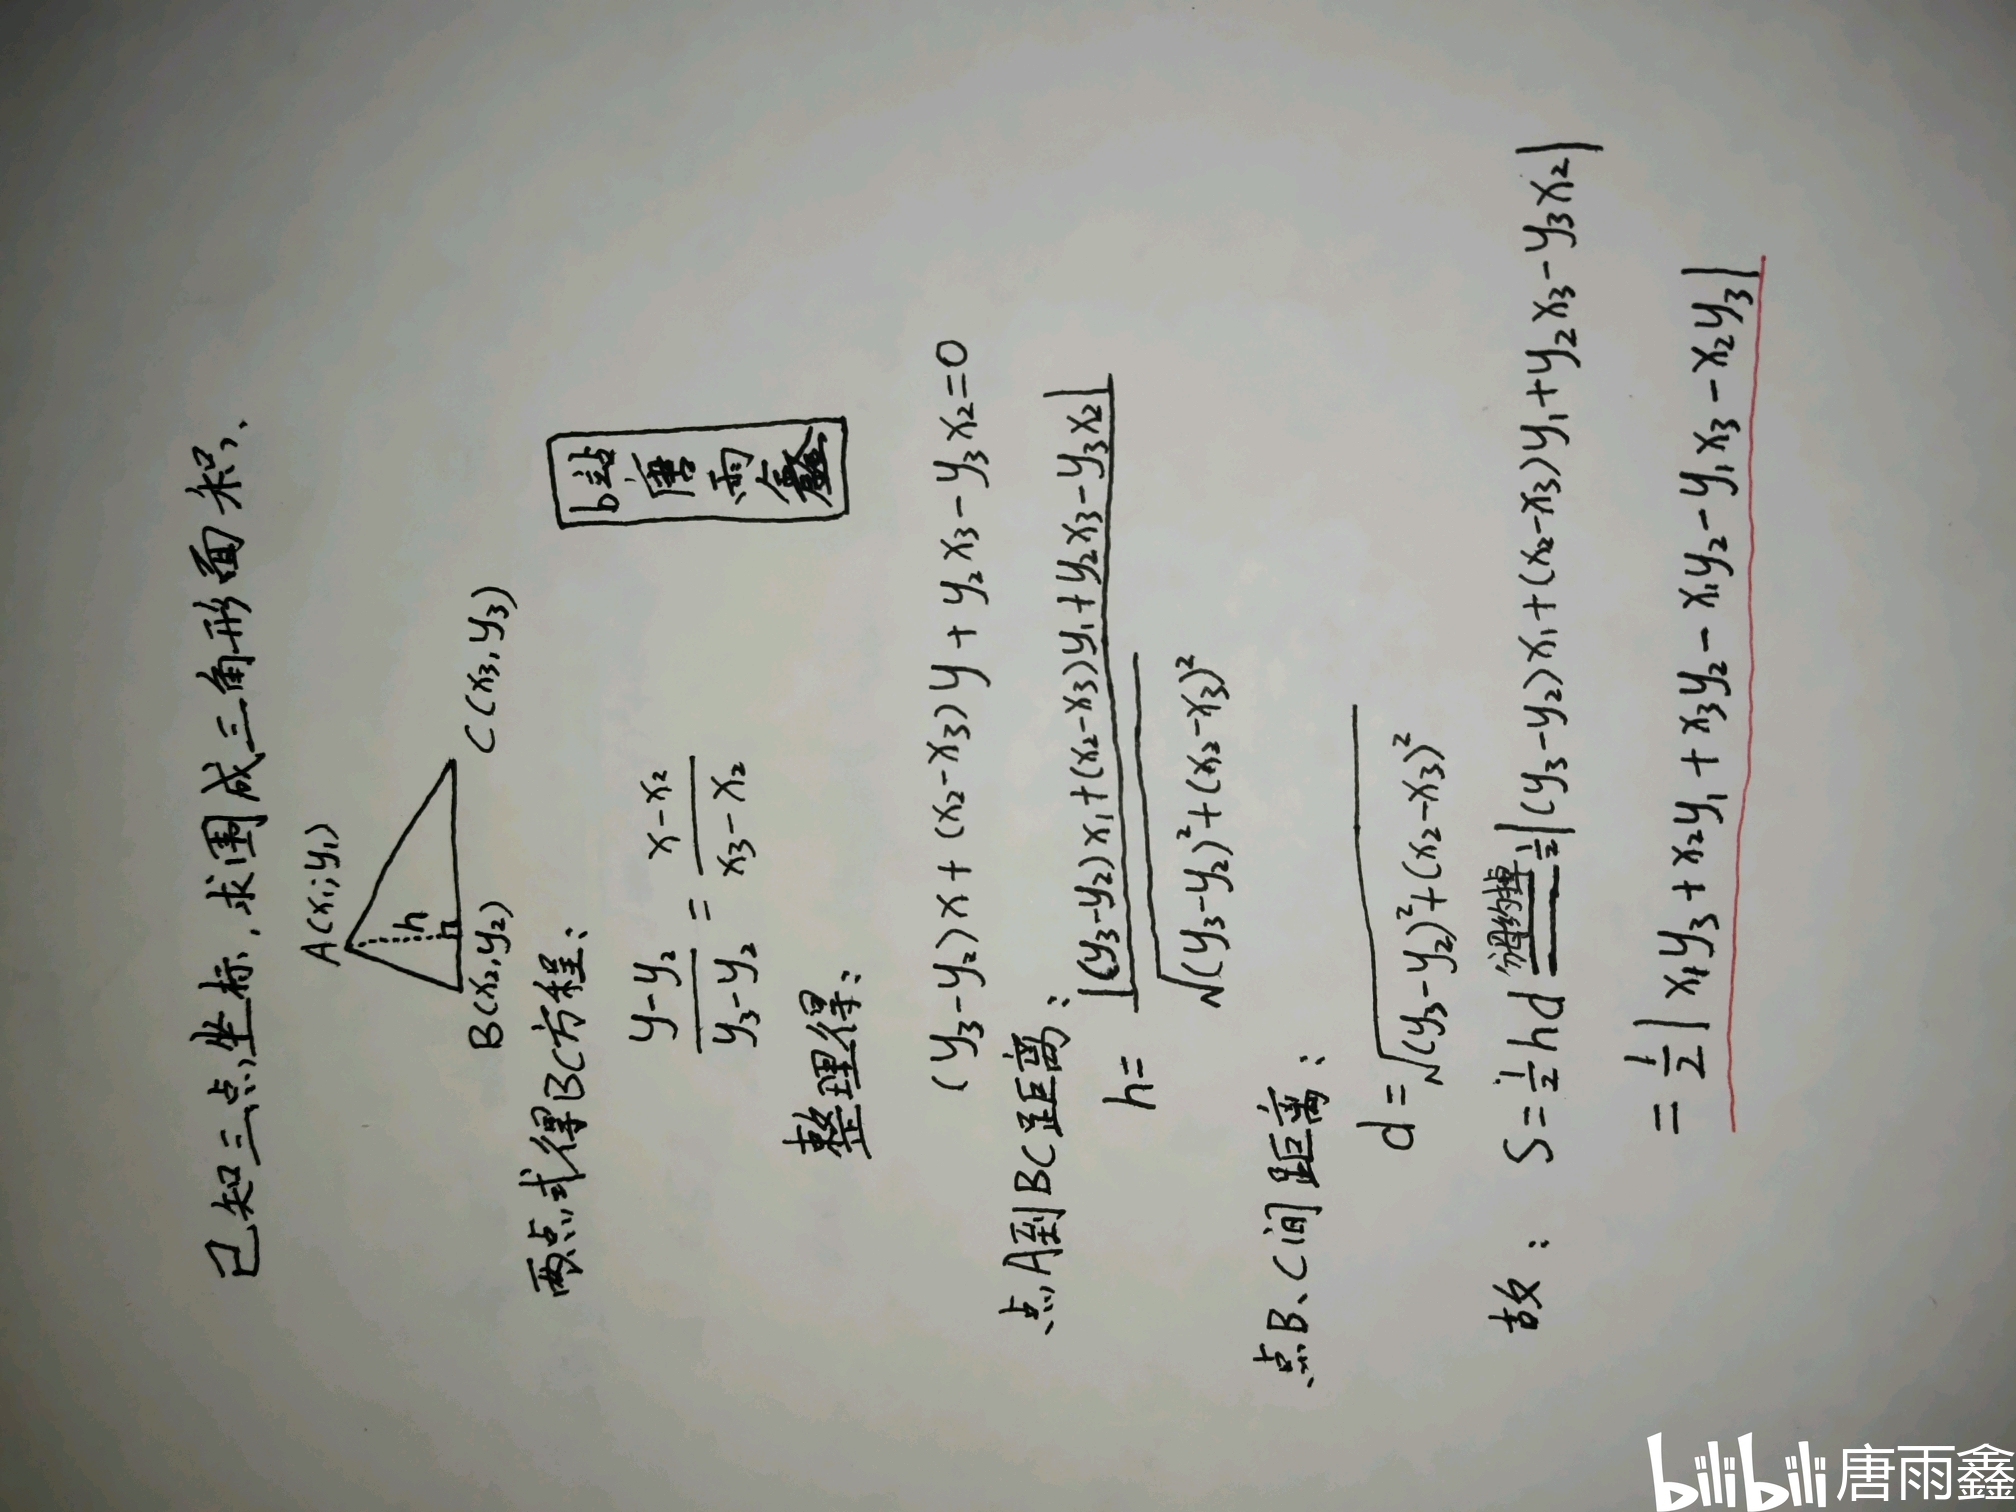 已知三点坐标,求围成三角形面积、
A(x₁,y₁)
h
B(x₂,y₂) C(x₃,y₃)
两点式得BC方程:
b站
唐
雨
鑫
(y-y₂)/(y₃-y₂) = (x-x₂)/(x₃-x₂)
整理得:
(y₃-y₂)x+(x₂-x₃)y+y₂x₃-y₃x₂=0
点A到BC距离:
h= |(y₃-y₂)x₁+(x₂-x₃)y₁+y₂x₃-y₃x₂| / √((y₃-y₂)²+(x₂-x₃)²)
点B、C间距离:
d=√((y₃-y₂)²+(x₂-x₃)²)
故: S=½hd 分母约掉 ½|(y₃-y₂)x₁+(x₂-x₃)y₁+y₂x₃-y₃x₂|
=½|x₁y₃+x₂y₁+x₃y₂-x₁y₂-y₁x₃-x₂y₃|
bilibili 唐雨鑫